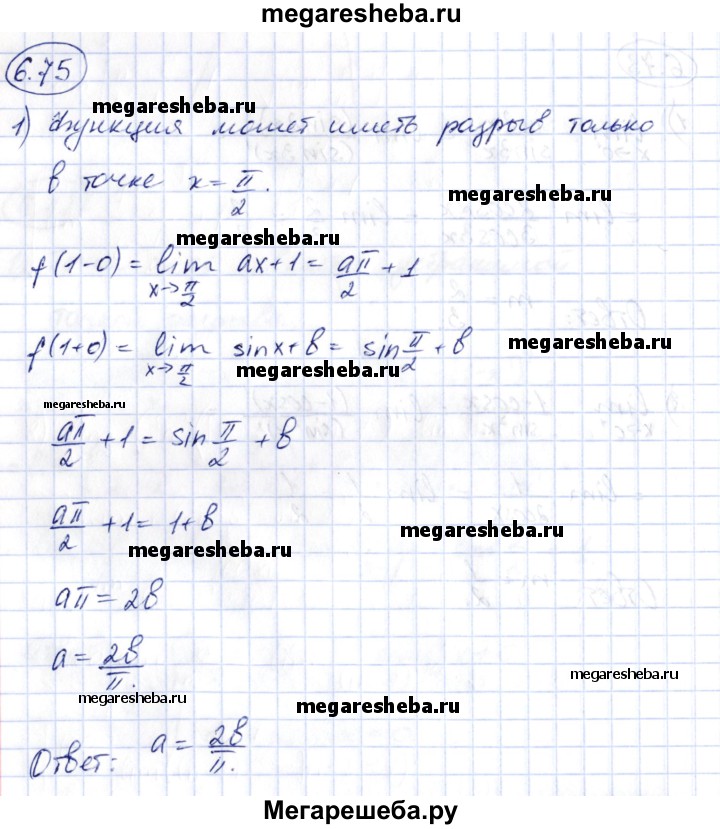 megaresheba.ru
6.75
megaresheba.ru
1) Функция может иметь разрыв только
в точке x = π/2.
megaresheba.ru
megaresheba.ru
f(1-0) = lim ax+1 = aπ/2 + 1
x→π/2
f(1+0) = lim sinx+b = sin π/2 + b
x→π/2
megaresheba.ru
megaresheba.ru
megaresheba.ru
aπ/2 + 1 = sin π/2 + b
aπ/2 + 1 = 1+b
megaresheba.ru
megaresheba.ru
aπ = 2b
a = 2b/π.
megaresheba.ru
megaresheba.ru
megaresheba.ru
Ответ: a = 2b/π.
Мегарешеба.ру